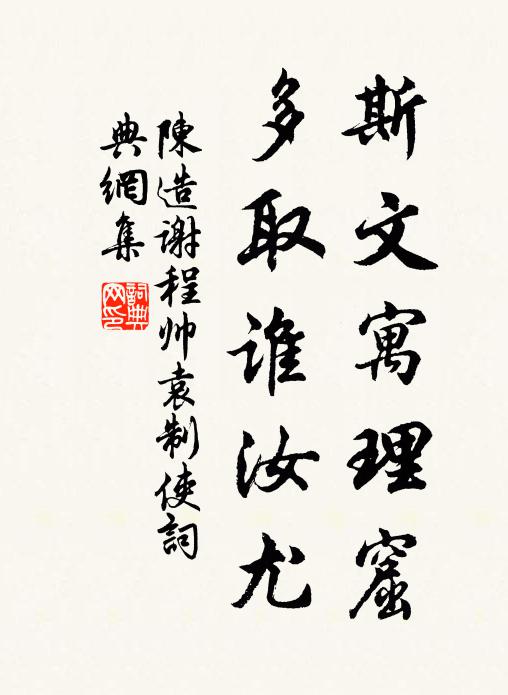 斯文寓理窟
多取谁汝尤
陳造謝程帅袁制使詞
典網集
詞典网印